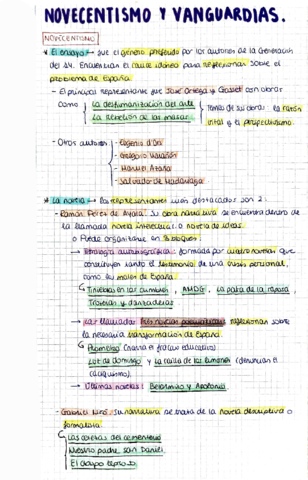 NOVECENTISMO Y VANGUARDIAS.
NOVECENTISMO
* El ensayo → fue el género preferido por los autores de la Generación
del 14. Encuentran el cauce idóneo para reflexionar sobre el
problema de España.
- El principal representante fue José Ortega y Gasset con obras
como
La deshumanización del arte
La rebelión de las masas
Temas de su obra: la razón
vital y el perspectivismo.
- Otros autores:
- Eugenio d'Ors
- Gregorio Marañón
- Manuel Azaña
- Salvador de Madariaga
* La novela → los representantes más destacados son 2:
- Ramón Pérez de Ayala. Su obra narrativa se encuentra dentro de
la llamada novela intelectual o novela de ideas.
o Puede organizarse en 3 bloques:
→ Tetralogía autobiográfica: formada por cuatro novelas que
constituyen tanto el testimonio de una crisis personal,
como los males de España.
Tinieblas en las cumbres, AMDG, La pata de la raposa,
Troteras y danzaderas
→ Las llamadas Tres novelas poemáticas reflexionan sobre
la necesaria transformación de España.
Prometeo (narra el fracaso educativo)
Luz de domingo y La caída de los limones (denuncian el
caciquismo).
→ Últimas novelas: Belarmino y Apolonio.
- Gabriel Miró. Su narrativa se trata de la novela descriptiva o
formalista.
Las cerezas del cementerio
Nuestro padre san Daniel
El obispo leproso